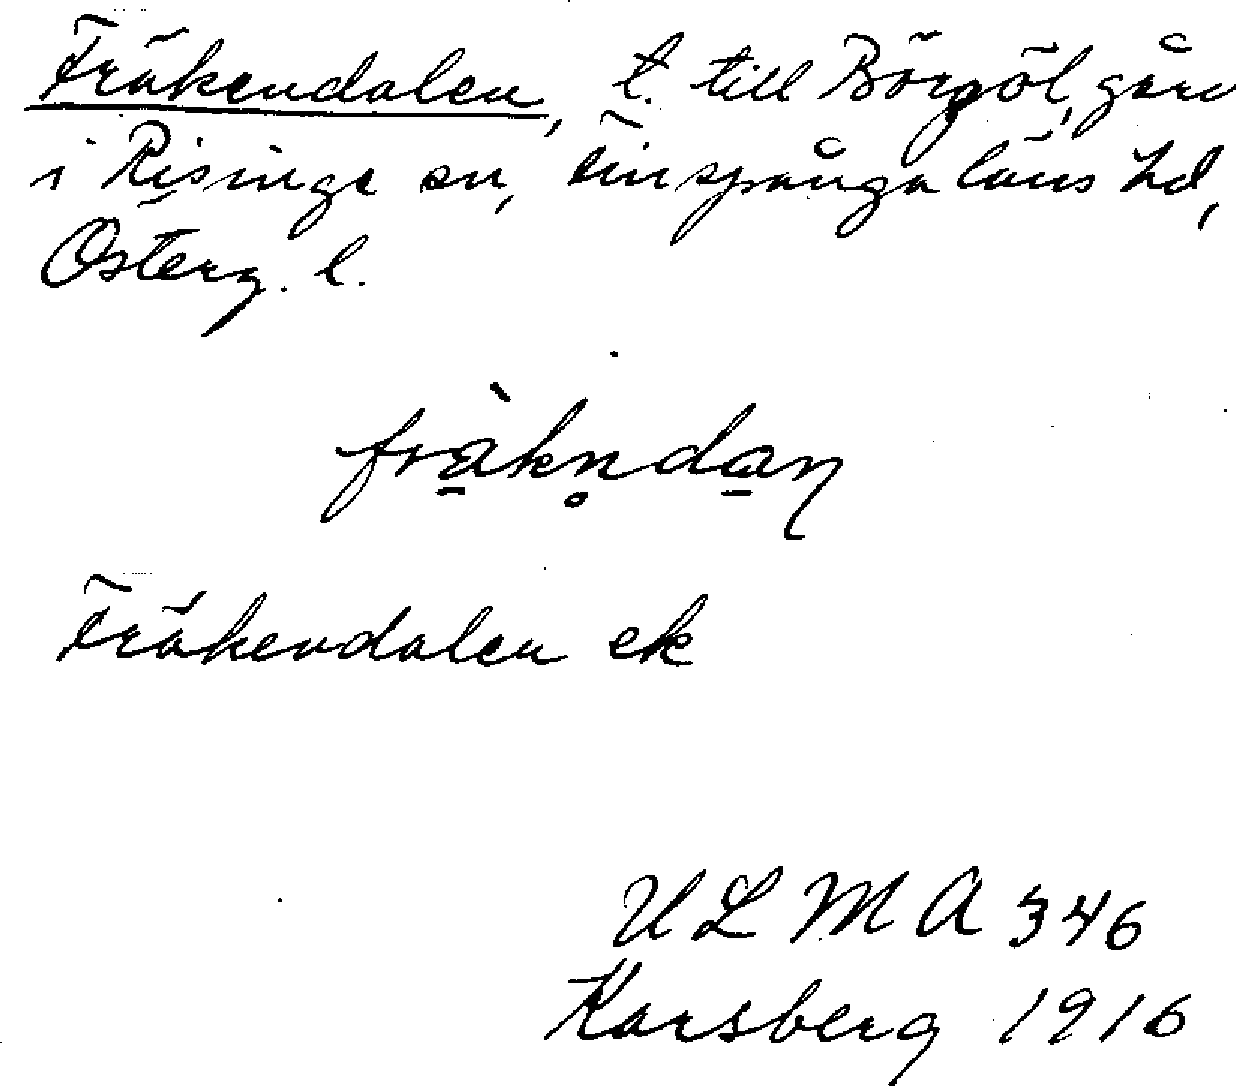 Fräkendalen, t. till Börgöl, gård
i Risinge sn, Finspånga läns hd,
Österg. l.
frä̀kn̥dan
Fräkendalen ek
ULMA 346
Karsberg 1916